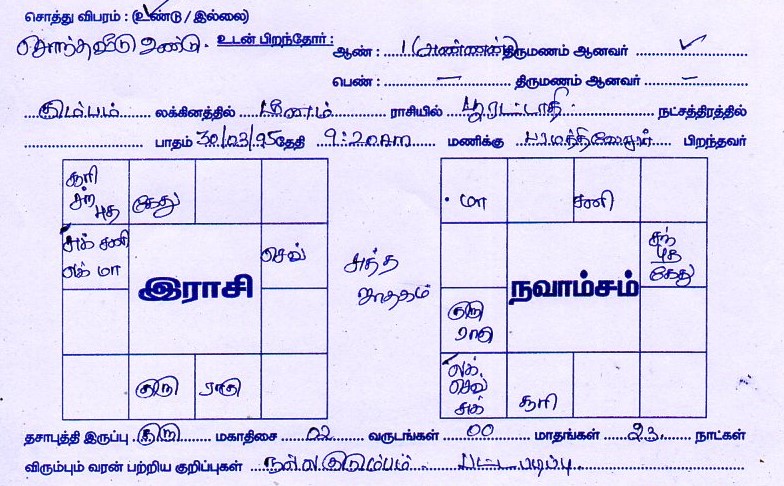 சொத்து விபரம் : (உண்டு / இல்லை)
சொந்தவீடு உண்டு. உடன் பிறந்தோர் : ஆண் : 1 (அண்ணன்) திருமணம் ஆனவர் ✓
பெண் : — திருமணம் ஆனவர் –
கும்பம் லக்கினத்தில் மீனம் ராசியில் பூரட்டாதி நட்சத்திரத்தில்
பாதம் 30/03/95 தேதி 9:20AM மணிக்கு பிறந்தவர்
சூரி
சந்
புத
கேது
சுக் சனி
லக் மா
செவ்
இராசி
குரு
ராகு
சுத்த
ஜாதகம்
மா
சனி
சந்
புத
கேது
நவாம்சம்
குரு
ராகு
லக்
செவ்
சுக்
சூரி
தசாபுத்தி இருப்பு குரு மகாதிசை 02 வருடங்கள் 00 மாதங்கள் 23 நாட்கள்
விரும்பும் வரன் பற்றிய குறிப்புகள் நல்ல குடும்பம் பட்டபடிப்பு